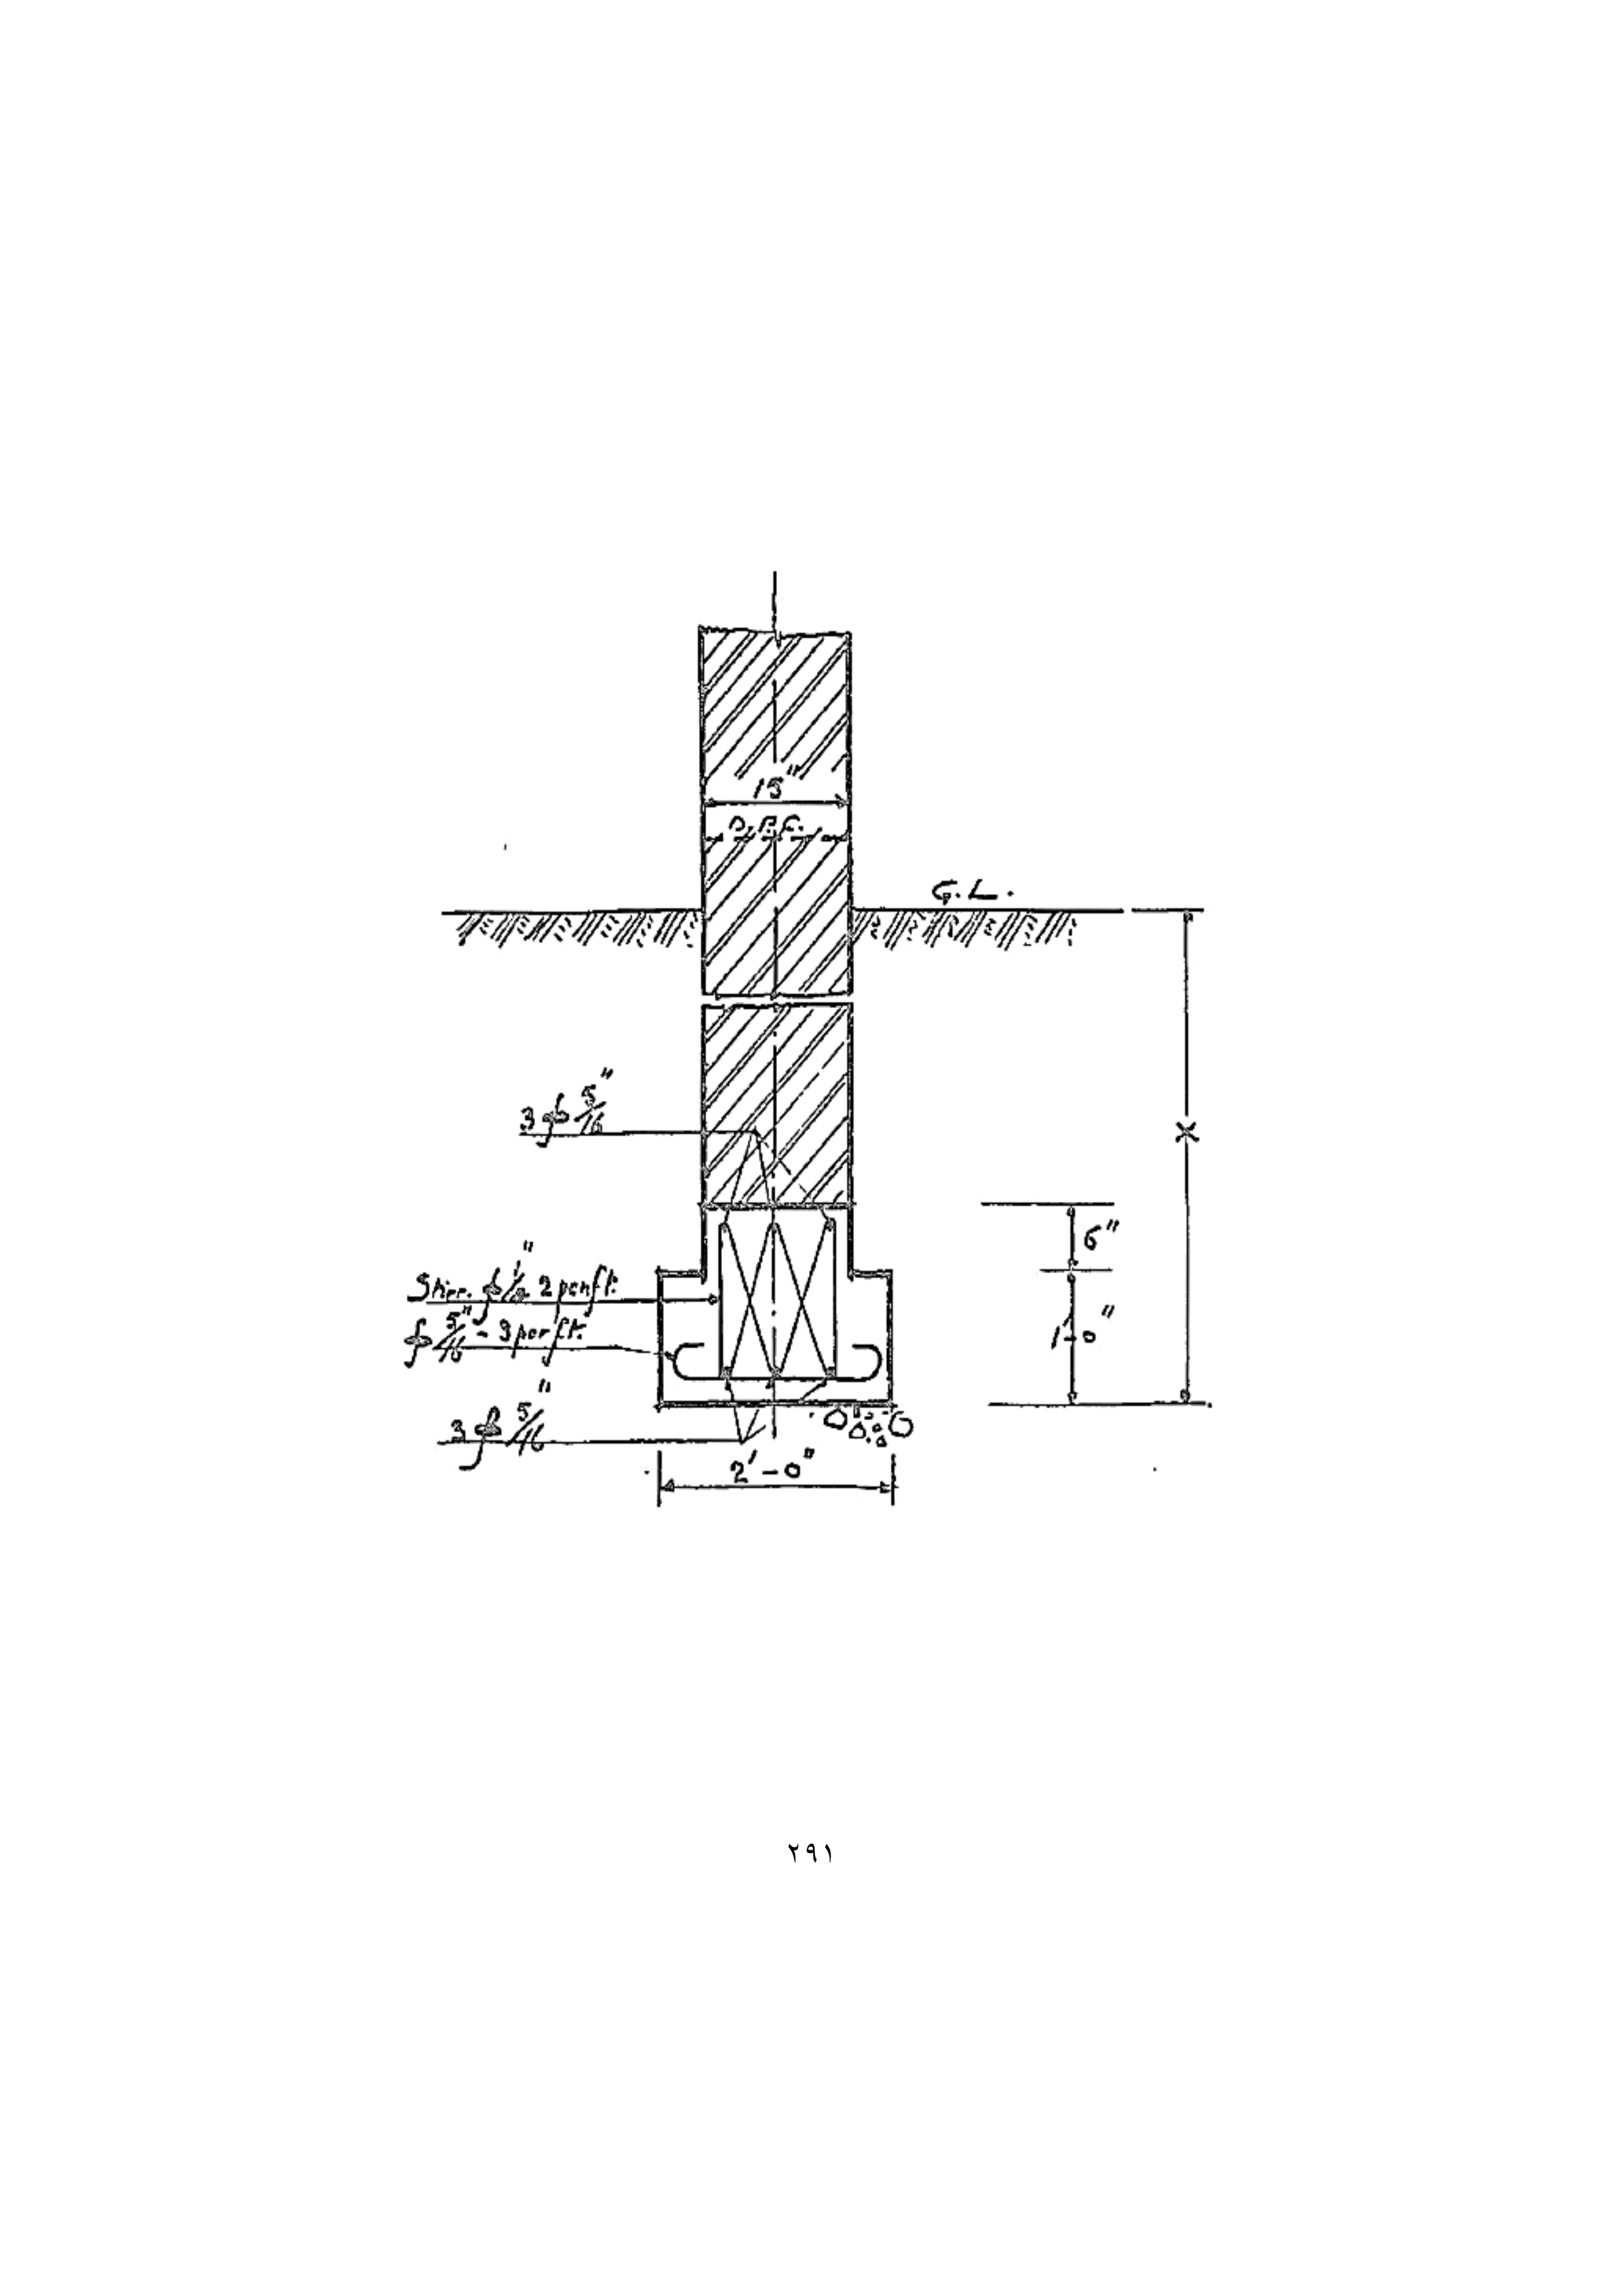 15"
D.P.C.
G.L.
3 ϕ 5/16"
X
6"
Stirr. ϕ 2 per ft.
1'-0"
ϕ 5/16" - 3 per ft.
3 ϕ 5/16"
2'-0"
٢٩١